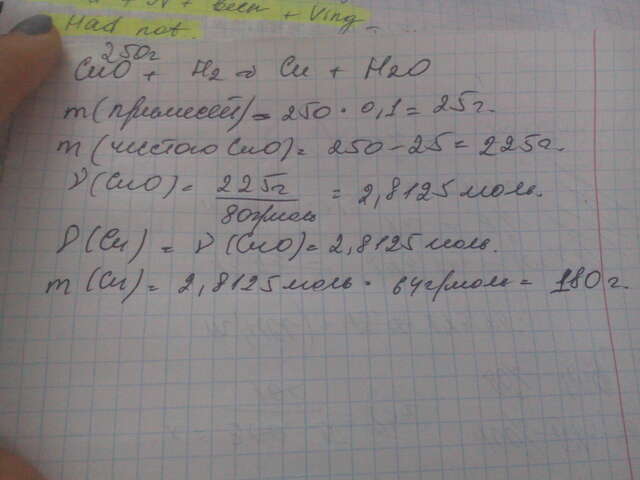 + весн + Ving
Had not
250г
CuO + H2 = Cu + H2O
m(примесей) = 250 · 0,1 = 25г.
m(чистого CuO) = 250 - 25 = 225г.
ν(CuO) = 225г / 80г/моль = 2,8125 моль.
ν(Cu) = ν(CuO) = 2,8125 моль.
m(Cu) = 2,8125 моль · 64г/моль = 180 г.